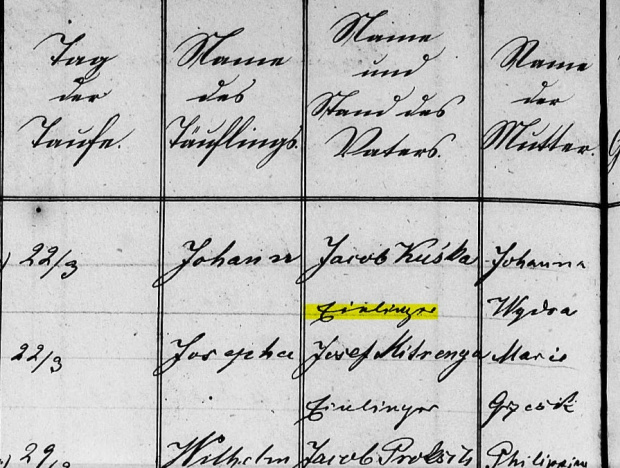 Tag
der
Taufe.
Name
des
Täuflings.
Name
und
Stand des
Vaters.
Name
der
Mutter.
22/3 Johann Jacob Kuśka Johanna
Einlinger Wydra
22/3 Josepha Josef Mitrenga Marie
Einlinger
Wilhelm Jacob